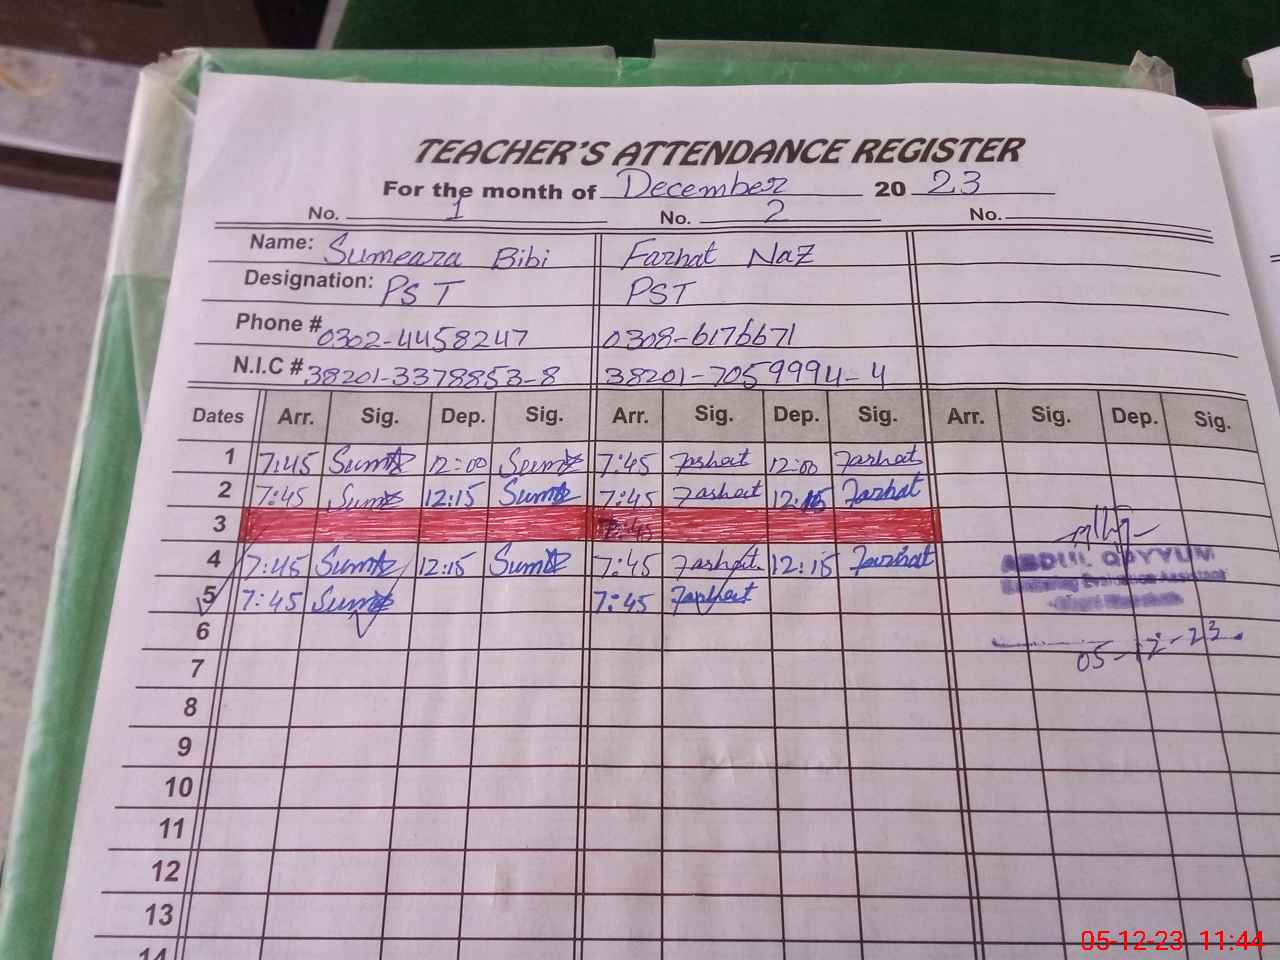 TEACHER'S ATTENDANCE REGISTER
For the month of December 20 23
No. 1 No. 2 No.
Name: Sumeara Bibi Farhat Naz
Designation: PST PST
Phone # 0302-4458247 0308-6176671
N.I.C # 38201-3378853-8 38201-7059994-4
Dates Arr. Sig. Dep. Sig. Arr. Sig. Dep. Sig. Arr. Sig. Dep. Sig.
1 7:45 12:00 7:45 Farhat 12:00 Farhat
2 7:45 12:15 7:45 Farhat 12:15 Farhat
3 7:45
4 7:45 12:15 7:45 Farhat 12:15 Farhat
5 7:45 7:45 Farhat
ABDUL QAYYUM
6
05-12-23
7
8
9
10
11
12
13
14
05-12-23 11:44